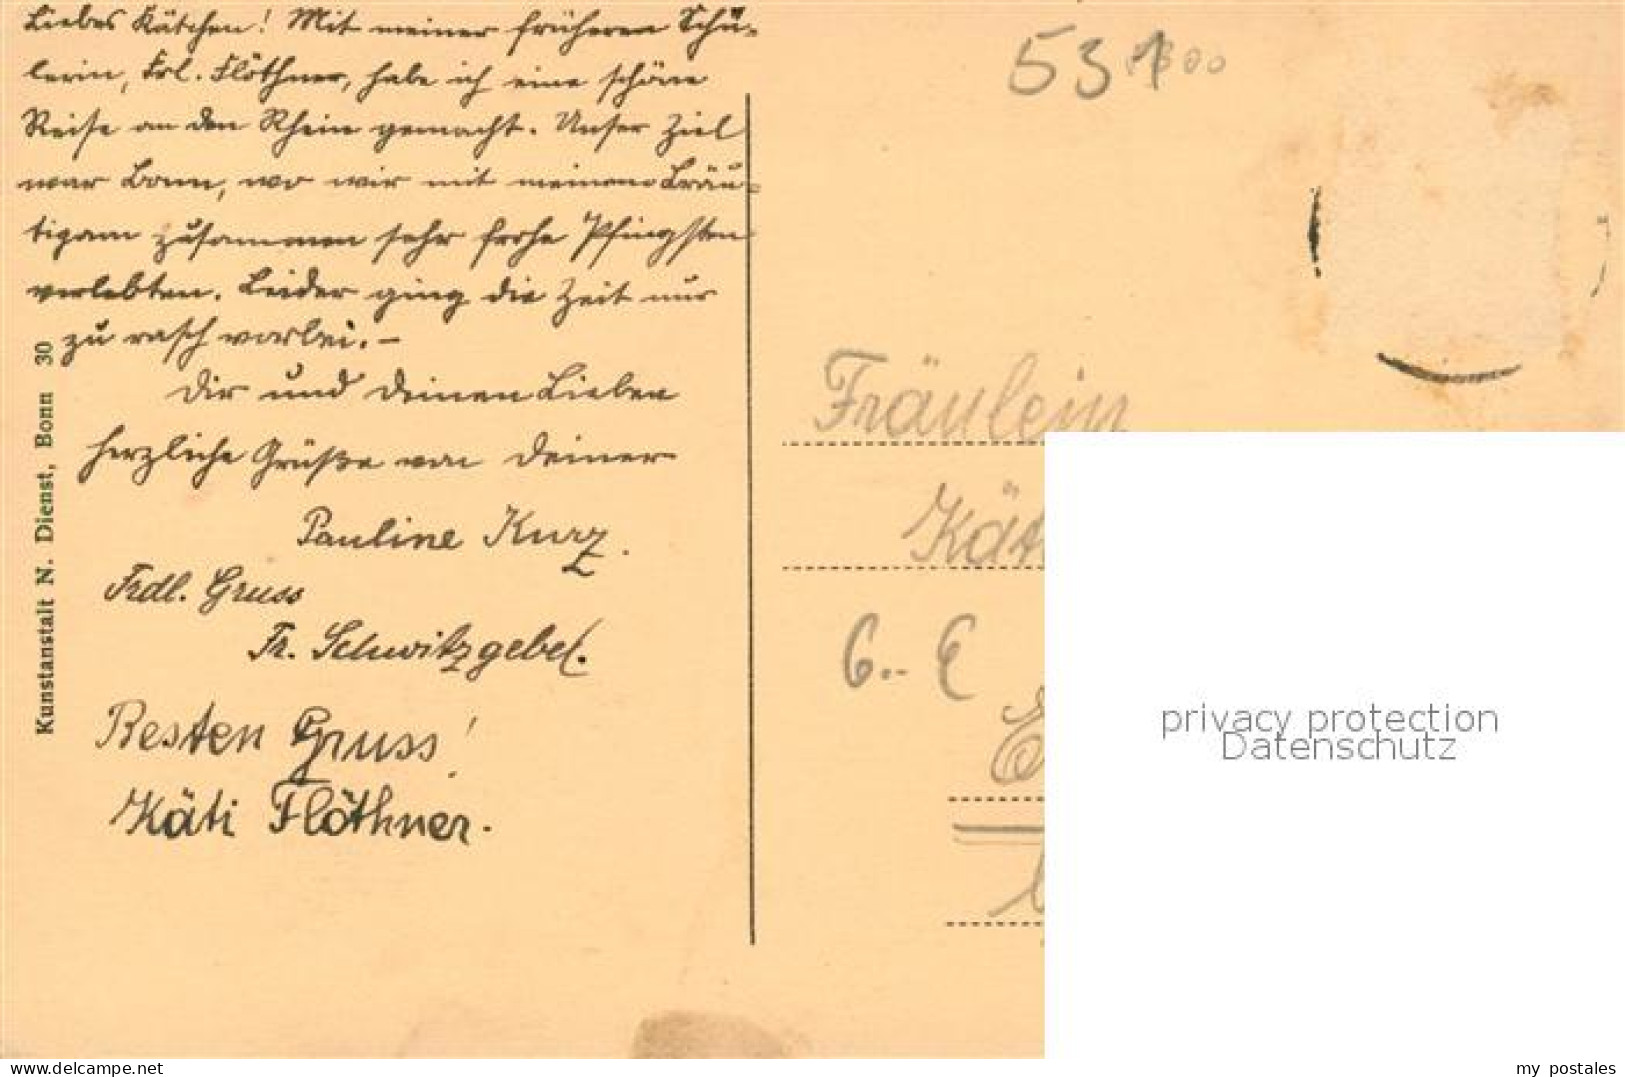 Liebes Kätchen! Mit meiner früheren Schü-
lerin, Frl. Flöthner, habe ich eine schöne
Reise an den Rhein gemacht. Unser Ziel
war Bonn, wo wir mit meinem Bräu-
tigam zusammen sehr frohe Pfingsten
verlebten. Leider ging die Zeit nur
zu rasch vorbei. –
Dir und Deinen Lieben
herzliche Grüße von Deiner
Pauline Kurz.
Frdl. Gruss
Fr. Schwitzgebel.
Besten Gruss!
Käti Flöthner.
Kunstanstalt N. Dienst, Bonn 30
531
Fräulein
Kät
6.- €
privacy protection
Datenschutz
www.delcampe.net
my_postales